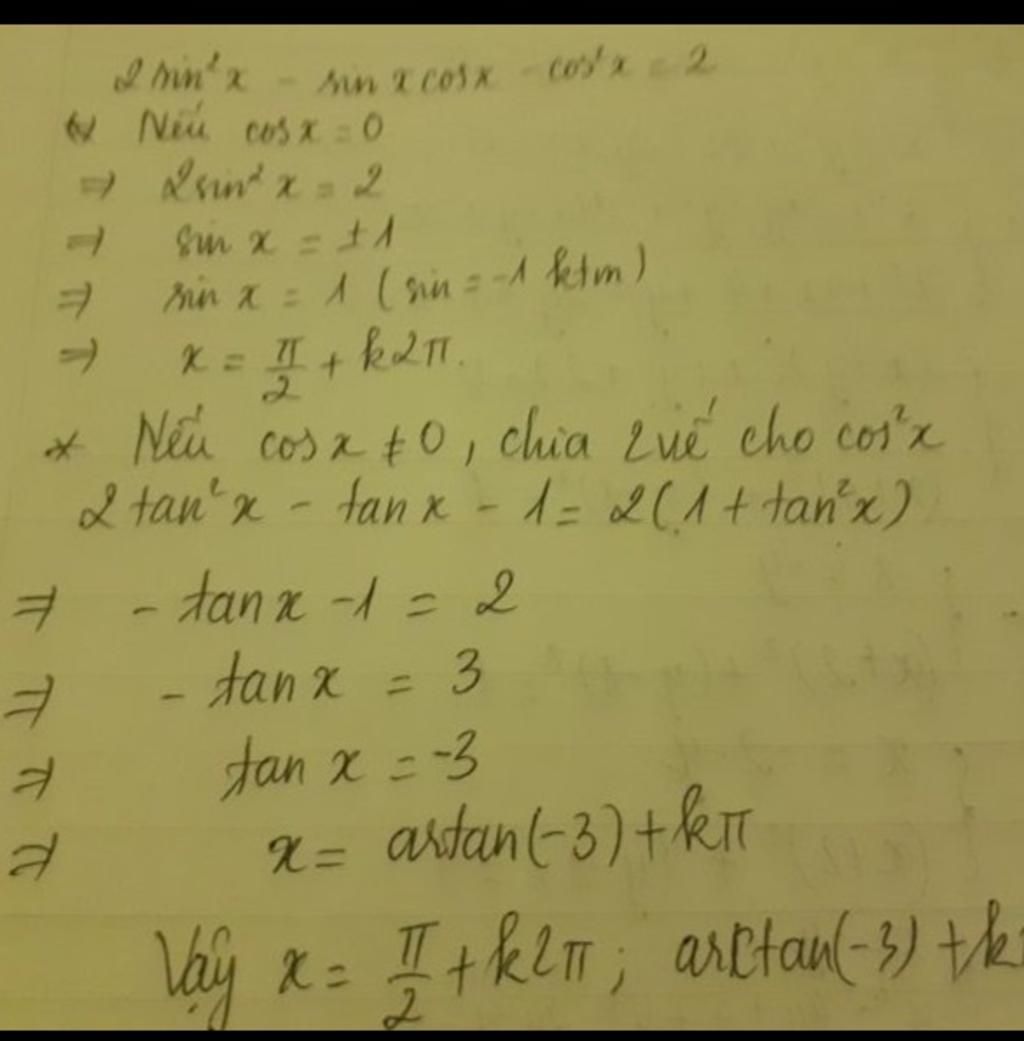 2 sin²x - sin x cos x - cos²x = 2
* Nếu cos x = 0
=> 2 sin² x = 2
=> sin x = ±1
=> sin x = 1 (sin = -1 ktm)
=> x = π/2 + k2π.
* Nếu cos x ≠ 0, chia 2 vế cho cos²x
2 tan²x - tan x - 1 = 2(1 + tan²x)
=> - tan x - 1 = 2
=> - tan x = 3
=> tan x = -3
=> x = artan(-3) + kπ
Vậy x = π/2 + k2π; arctan(-3) + k